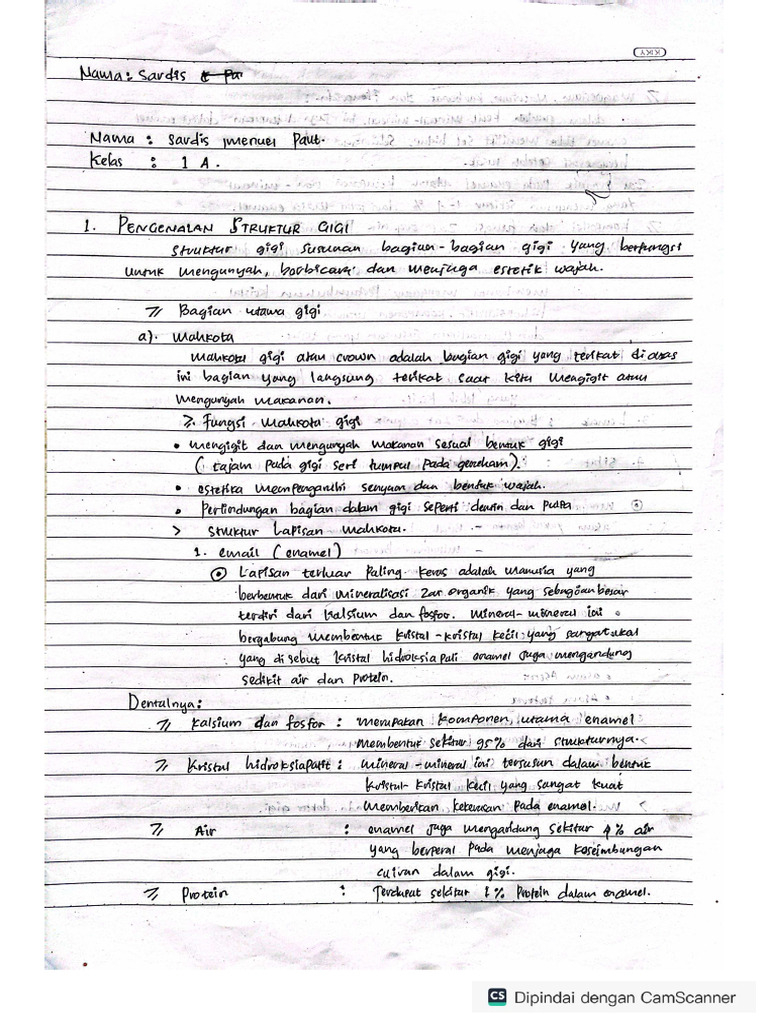 KIKY
Nama : Sardis
Nama : Sardis Imenuel Paut.
Kelas : 1 A.
1. PENGENALAN STRUKTUR GIGI
Struktur gigi susunan bagian-bagian gigi yang berfungsi
untuk mengunyah, berbicara dan menjaga estetik wajah.
⩾ Bagian utama gigi
a). Mahkota
Mahkota gigi atau crown adalah bagian gigi yang terikat di atas
ini bagian yang langsung terikat saat kita mengigit atau
mengunyah makanan.
⩾ Fungsi mahkota gigi
• mengigit dan mengunyah makanan sesuai bentuk gigi
( tajam pada gigi seri tumpul pada geraham).
• estetika mempengaruhi senyum dan bentuk wajah.
• Perlindungan bagian dalam gigi seperti dentin dan pulpa
> Struktur Lapisan mahkota.
1. email ( enamel )
⊙ Lapisan terluar Paling keras adalah manusia yang
berbentuk dari mineralisasi zar organik yang sebagian besar
terdiri dari kalsium dan fosfor. mineral-mineral ini
bergabung membentuk kristal-kristal kecil yang sangat
yang disebut kristal hidroksiapati enamel juga mengandung
sedikit air dan protein.
Dentalnya :
⩾ Kalsium dan fosfor : merupakan komponen, utama enamel
membentuk sekitar 95% dari strukturnya.
⩾ Kristal hidroksiapatit : mineral-mineral ini tersusun dalam bentuk
kristal-kristal kecil yang sangat kuat
memberikan kekerasan pada enamel.
⩾ Air : enamel juga mengandung sekitar 4% air
yang berperal pada menjaga keseimbungan
cairan dalam gigi.
⩾ Protein : Terdapat sekitar 1% Protein dalam enamel.
CS Dipindai dengan CamScanner